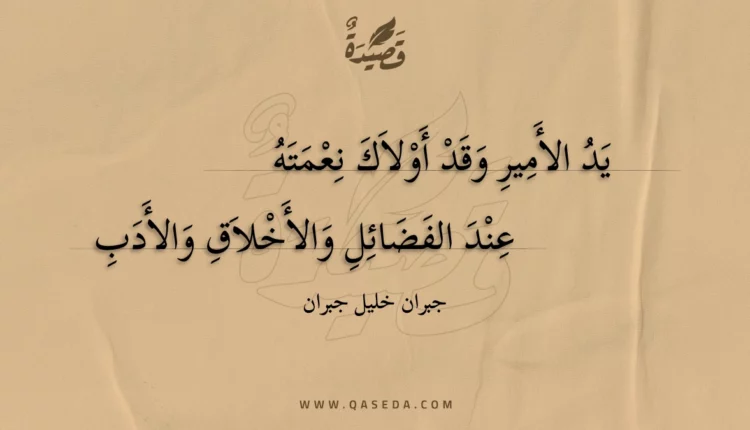 قَصِيدَةٌ
يَدُ الأَمِيرِ وَقَدْ أَوْلاَكَ نِعْمَتَهُ
عِنْدَ الفَضَائِلِ وَالأَخْلاَقِ وَالأَدَبِ
جبران خليل جبران
WWW.QASEDA.COM